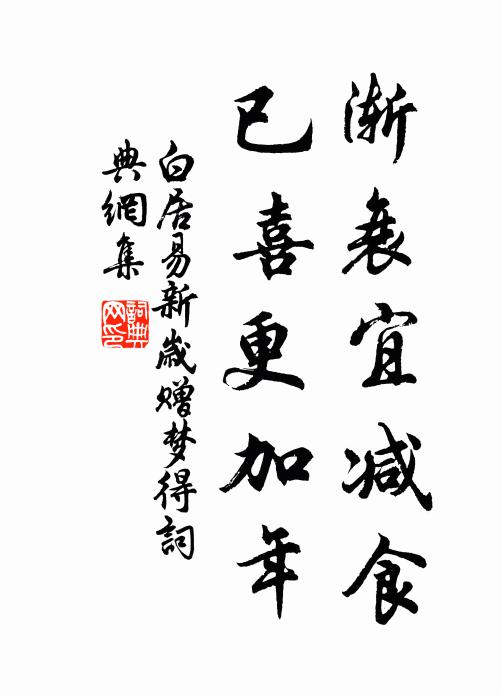 渐衰宜减食
已喜更加年
白居易新歲赠梦得詞
典網集
詞典
网印